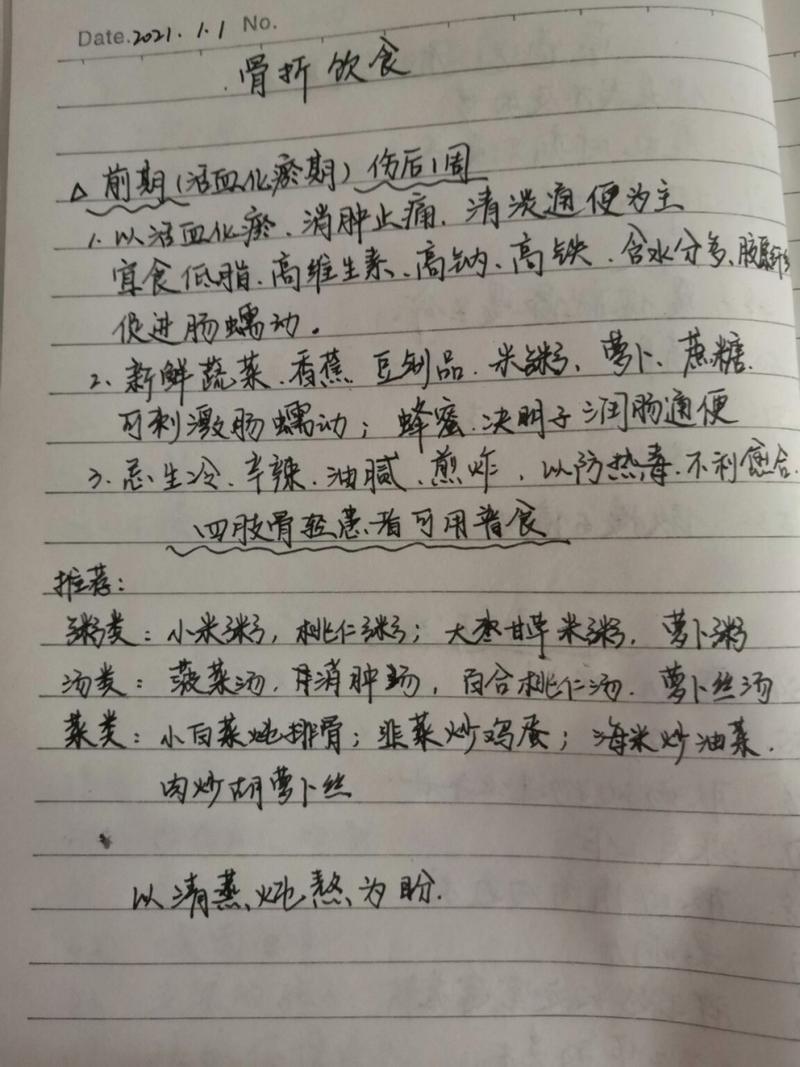 Date. 2021. 1. 1 No.
骨折饮食
△前期(活血化瘀期) 伤后1周
1. 以活血化瘀、消肿止痛、清泼通便为主
宜食低脂、高维生素、高钠、高铁、含水分多、
促进肠蠕动。
2. 新鲜蔬菜、香蕉、豆制品、米粥、萝卜、蔗糖
可刺激肠蠕动；蜂蜜、决明子润肠通便
3. 忌生冷、辛辣、油腻、煎炸，以防热毒、不利愈合。
四肢骨轻患者可用普食
推荐：
粥类：小米粥，桃仁粥；大枣甘草米粥，萝卜粥
汤类：菠菜汤，消肿汤，百合桃仁汤、萝卜丝汤
菜类：小白菜炖排骨；韭菜炒鸡蛋；海米炒油菜、
肉炒胡萝卜丝
以清蒸、炖熬为